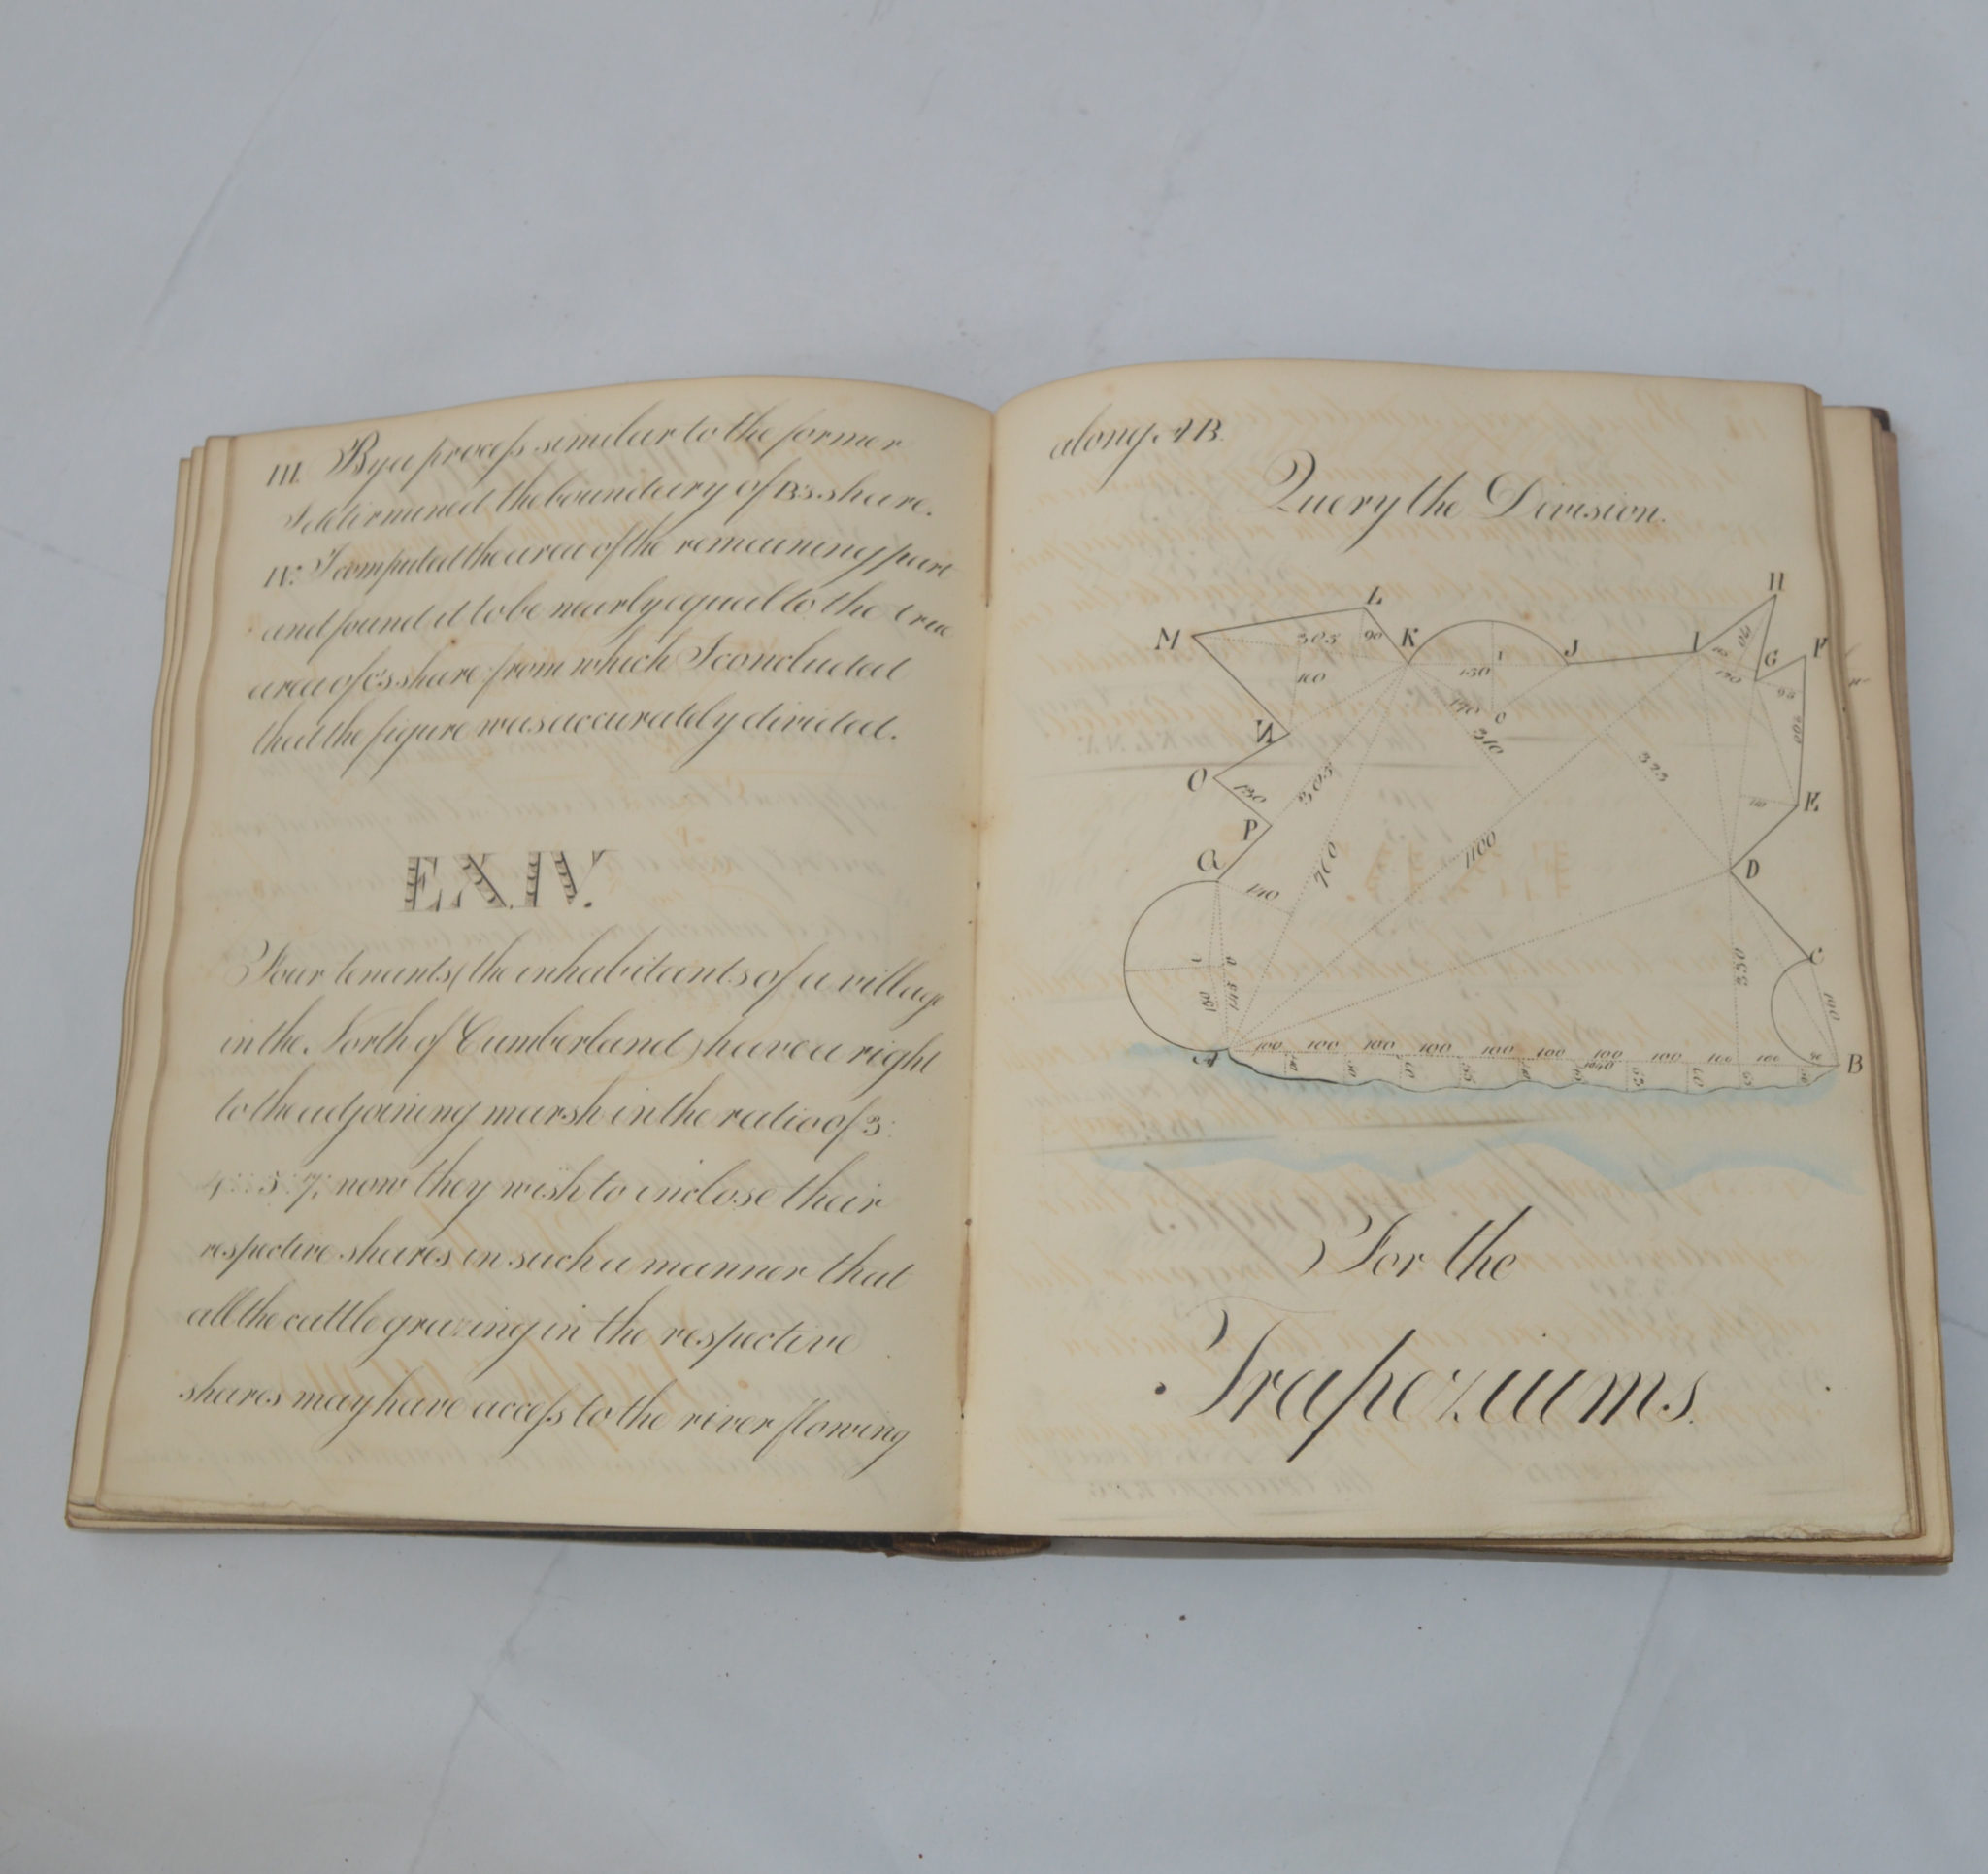 III. By a process similar to the former
I determined the boundary of B's share.
IV. I computed the area of the remaining part
and found it to be nearly equal to the true
area of C's share from which I concluded
that the figure was accurately divided.
EX. IV.
Four tenants (the inhabitants of a village
in the North of Cumberland) have a right
to the adjoining marsh in the ratio of 3:
4::5:7; now they wish to inclose their
respective shares in such a manner that
all the cattle grazing in the respective
shares may have access to the river flowing
along AB.
Query the Division.
H
L
M
K
J
I
G
F
305
90
160
150
190
95
N
310
200
O
130
305
325
E
P
Q
700
1100
D
140
C
150
145
350
100
A
100 100 100 100 100 100 100 100 100 100
1040
B
For the
Trapeziums.